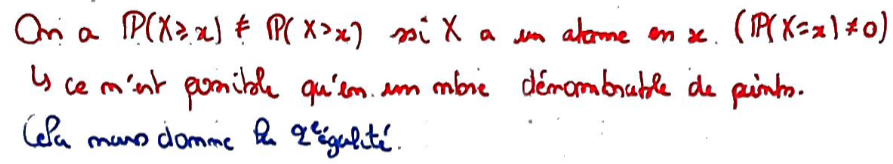 On a P(X≥x) ≠ P(X>x) ssi X a un atome en x. (P(X=x)≠0)
↳ ce n'est possible qu'en un nbre dénombrable de points.
Cela nous donne la 2e égalité.